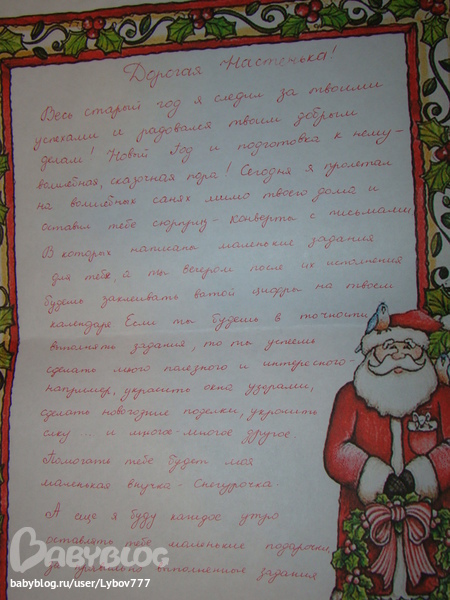 Дорогая Настенька!
Весь старый год я следил за твоими
успехами и радовался твоим добрым
делам! Новый Год и подготовка к нему-
волшебная, сказочная пора! Сегодня я пролетал
на волшебных санях мимо твоего дома и
оставил тебе сюрприз- конверты с письмами,
В которых написаны маленькие задания
для тебя, а ты вечером после их исполнения
будешь заклеивать ватой цифры на твоем
календаре. Если ты будешь в точности
выполнять задания, то ты успеешь
сделать много полезного и интересного-
например, украсить окна узорами,
сделать новогодние поделки, украсить
елку ... и многое-многое другое.
Помогать тебе будет моя
маленькая внучка- Снегурочка.
А еще я буду каждое утро
оставлять тебе маленькие подарочки,
за правильно выполненные задания
BABYBLOG
babyblog.ru/user/Lybov777